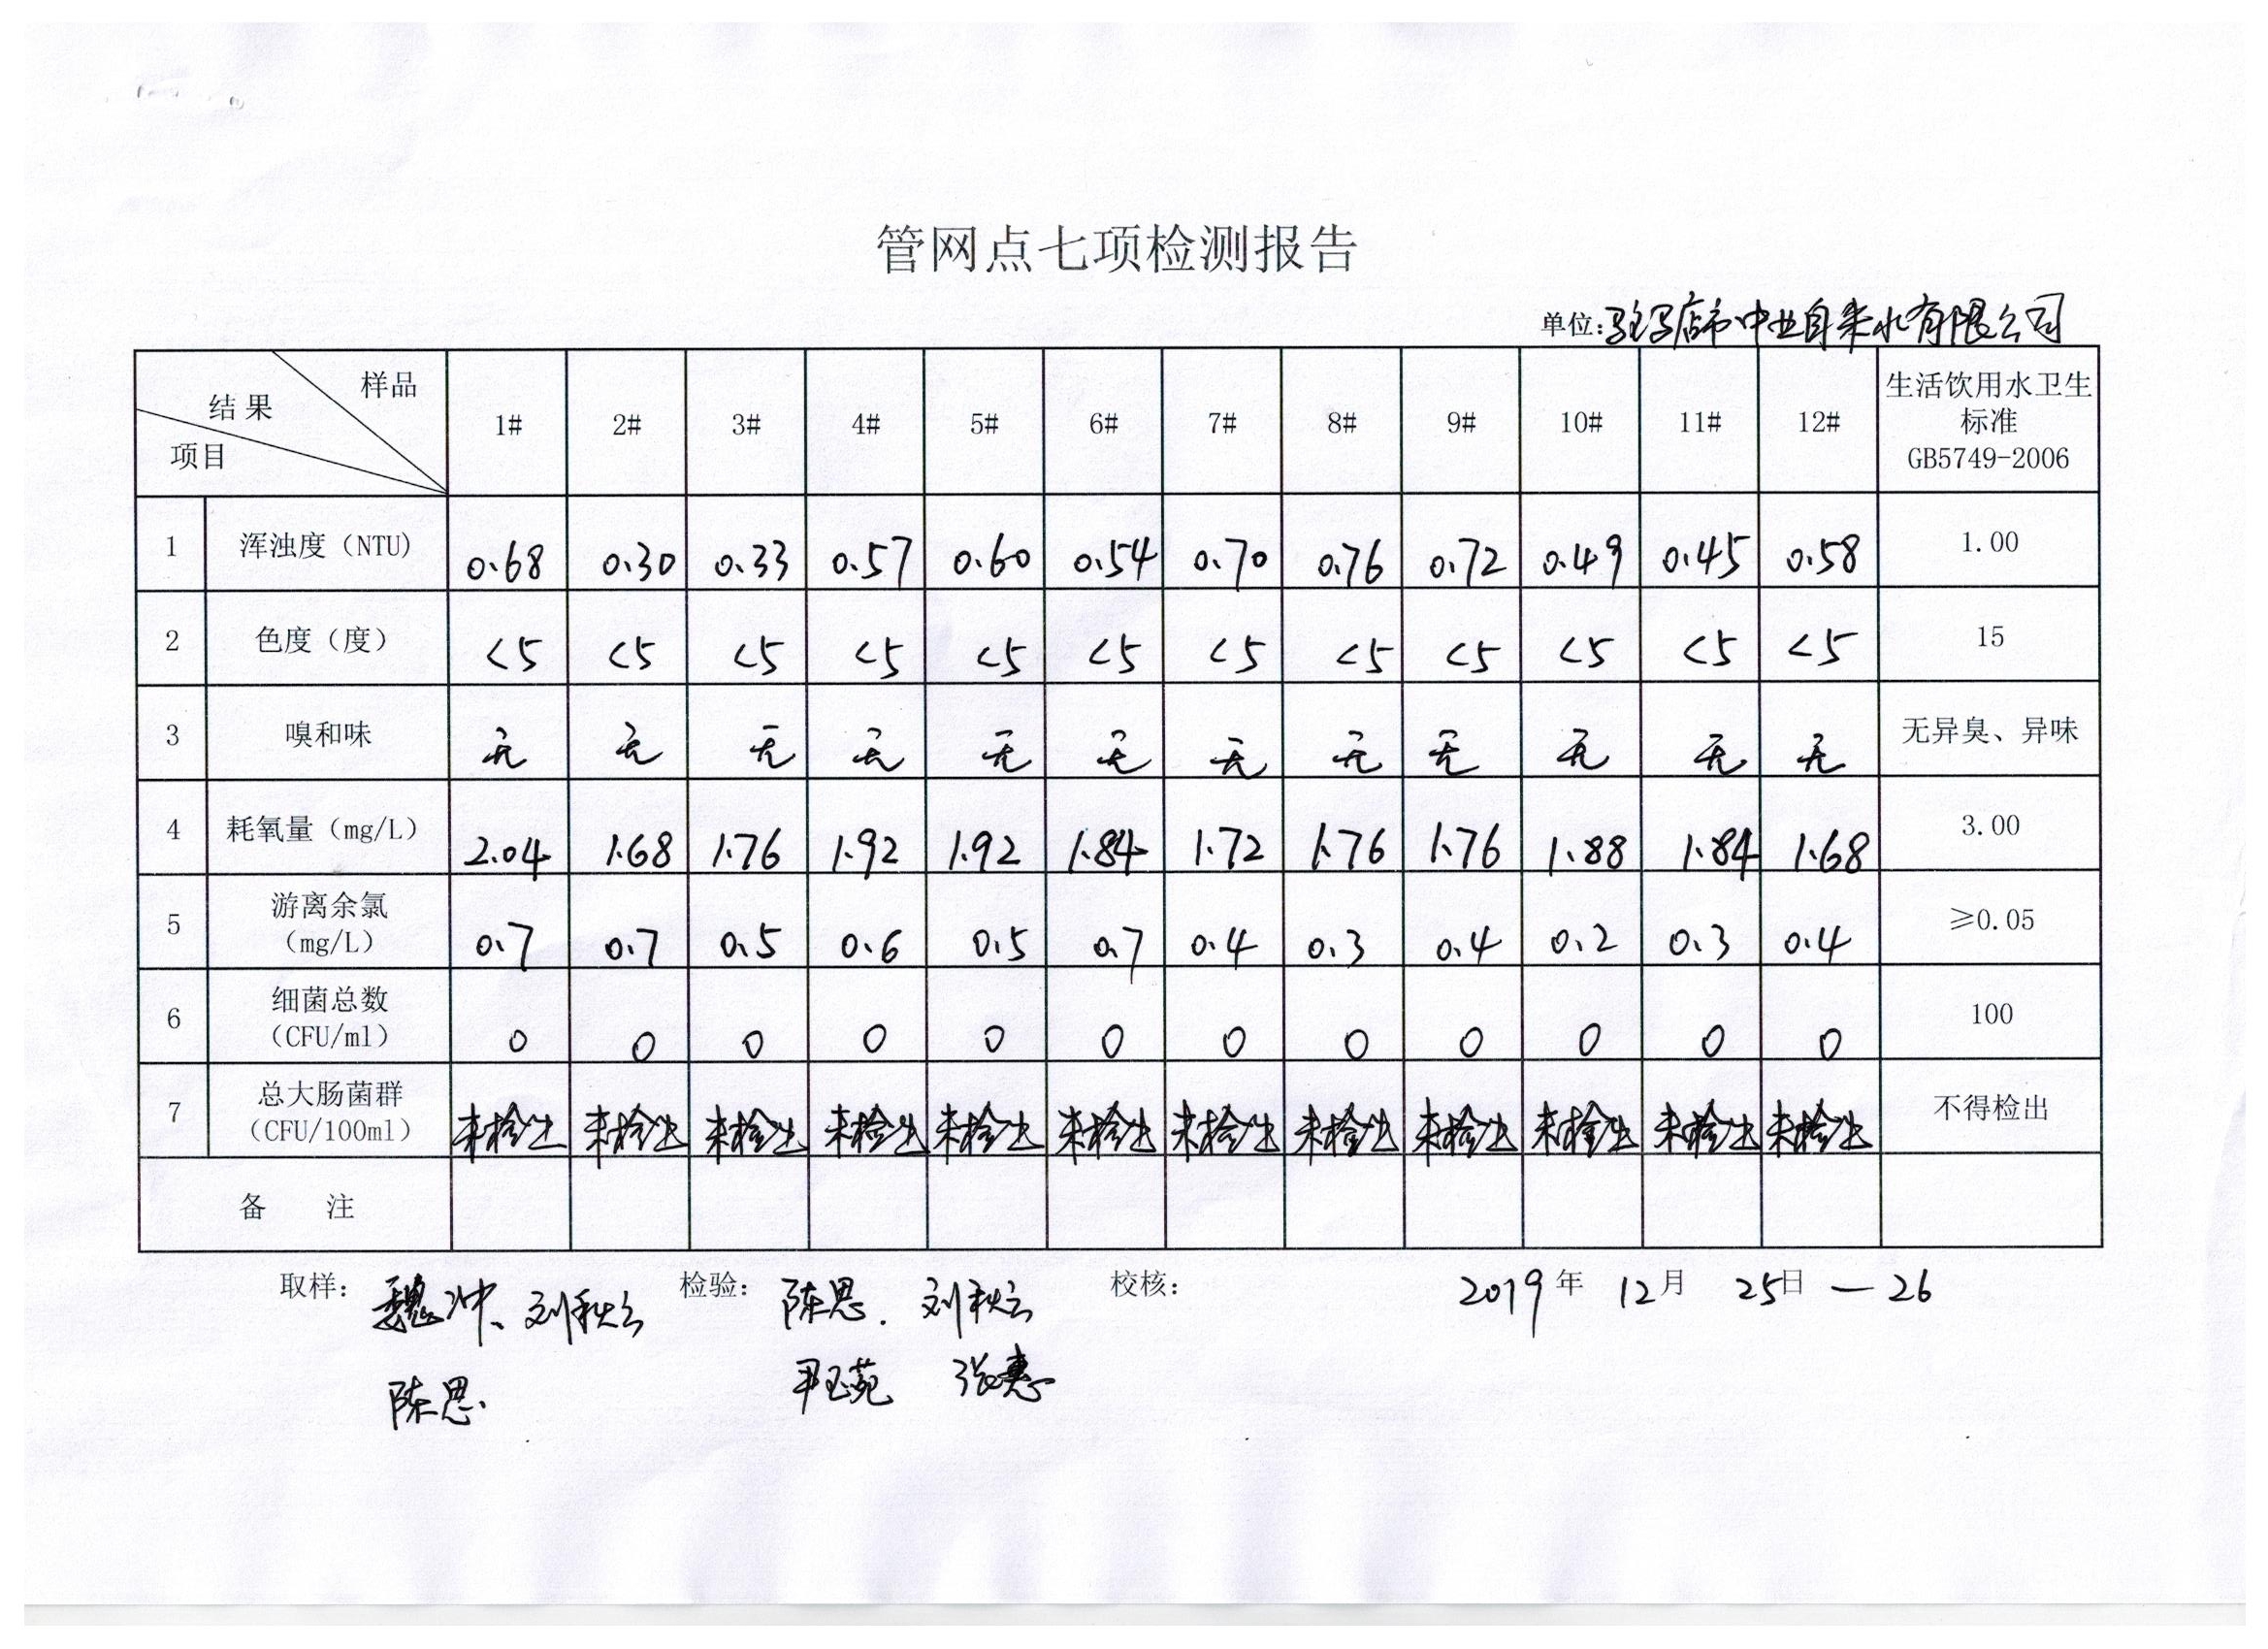 管网点七项检测报告
单位:驻马店市中业自来水有限公司
样品 结果 项目 1# 2# 3# 4# 5# 6# 7# 8# 9# 10# 11# 12# 生活饮用水卫生标准 GB5749-2006
1 浑浊度（NTU) 0.68 0.30 0.33 0.57 0.60 0.54 0.70 0.76 0.72 0.49 0.45 0.58 1.00
2 色度（度） <5 <5 <5 <5 <5 <5 <5 <5 <5 <5 <5 <5 15
3 嗅和味 无 无 无 无 无 无 无 无 无 无 无 无 无异臭、异味
4 耗氧量（mg/L） 2.04 1.68 1.76 1.92 1.92 1.84 1.72 1.76 1.76 1.88 1.84 1.68 3.00
5 游离余氯（mg/L） 0.7 0.7 0.5 0.6 0.5 0.7 0.4 0.3 0.4 0.2 0.3 0.4 ≥0.05
6 细菌总数（CFU/ml） 0 0 0 0 0 0 0 0 0 0 0 0 100
7 总大肠菌群（CFU/100ml） 未检出 未检出 未检出 未检出 未检出 未检出 未检出 未检出 未检出 未检出 未检出 未检出 不得检出
备 注
取样: 魏冲、刘秋云 检验: 陈思. 刘秋云 校核: 2019年 12月 25日 — 26
陈思. 尹玉菀 张惠